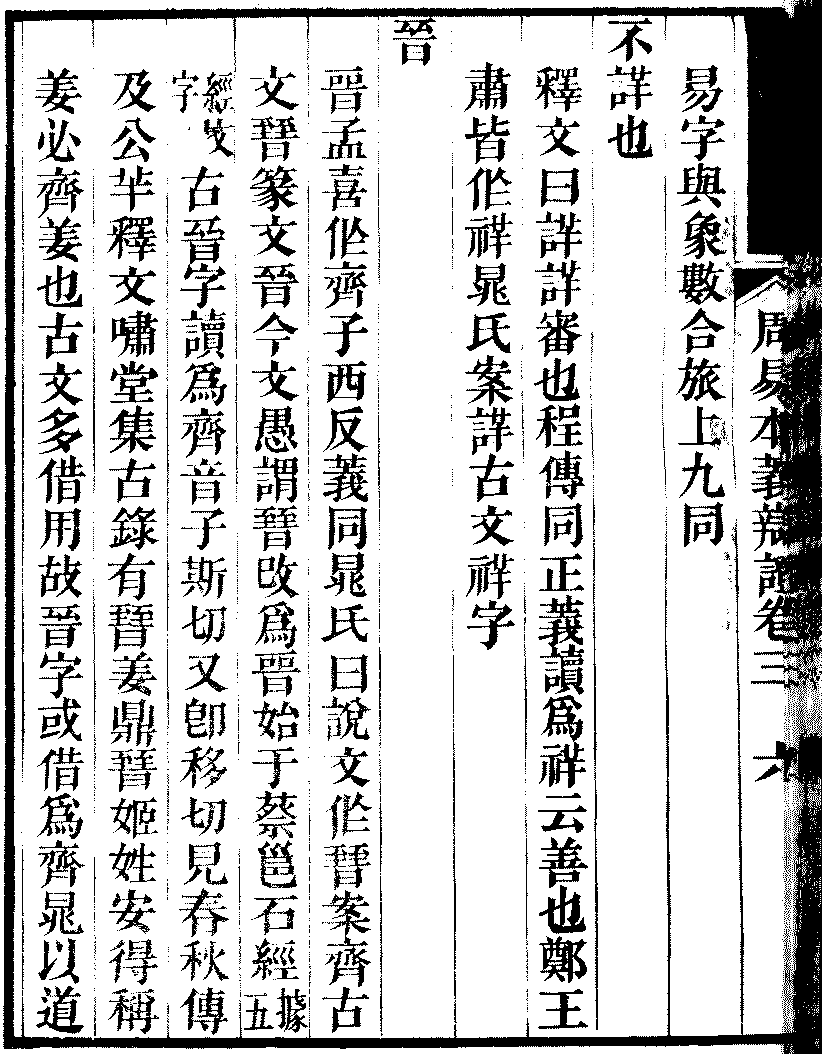 周易本義辯證卷三 六
易字與象數合旅上九同
不詳也
釋文曰詳詳審也程傳同正義讀爲祥云善也鄭王
肅皆作祥晁氏案詳古文祥字
晉
晉孟喜作齊子西反義同晁氏曰說文作晉案齊古
文晉篆文晉今文愚謂晉改爲晉始于蔡邕石經據五
經文字古晉字讀爲齊音子斯切又卽移切見春秋傳
及公羊釋文嘯堂集古錄有晉姜鼎晉姬姓安得稱
姜必齊姜也古文多借用故晉字或借爲齊晁以道